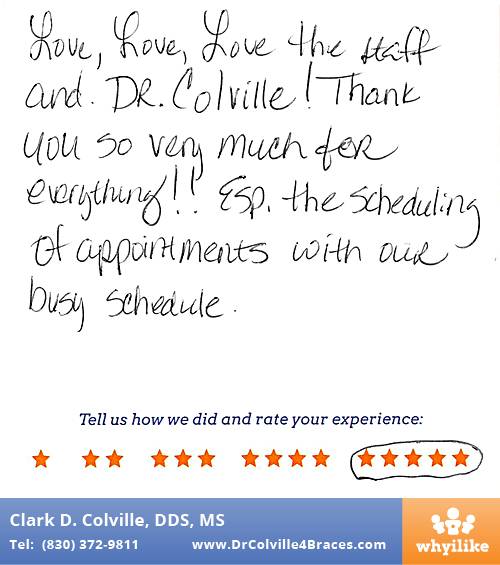 Love, Love, Love the staff
and. DR. Colville! Thank
you so very much for
everything!! Esp. the scheduling
of appointments with our
busy schedule.
Tell us how we did and rate your experience:
Clark D. Colville, DDS, MS
Tel: (830) 372-9811 www.DrColville4Braces.com
whyilike